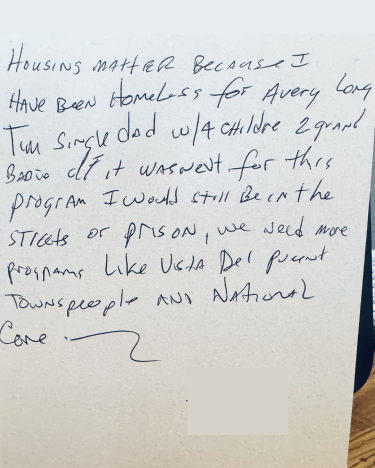 HOUSING MATTER BECAUSE I
HAVE BEEN HOMELESS for AVERY LONG
TIM SINGLE dad w/4 CHILDRE 2 grand
if it WASNENT for this
program I would still BE IN the
STREETS or prison, we need more
programs Like VISTA DEL puent
TOWNSPEOPLE AND NATIONAL
CORE.